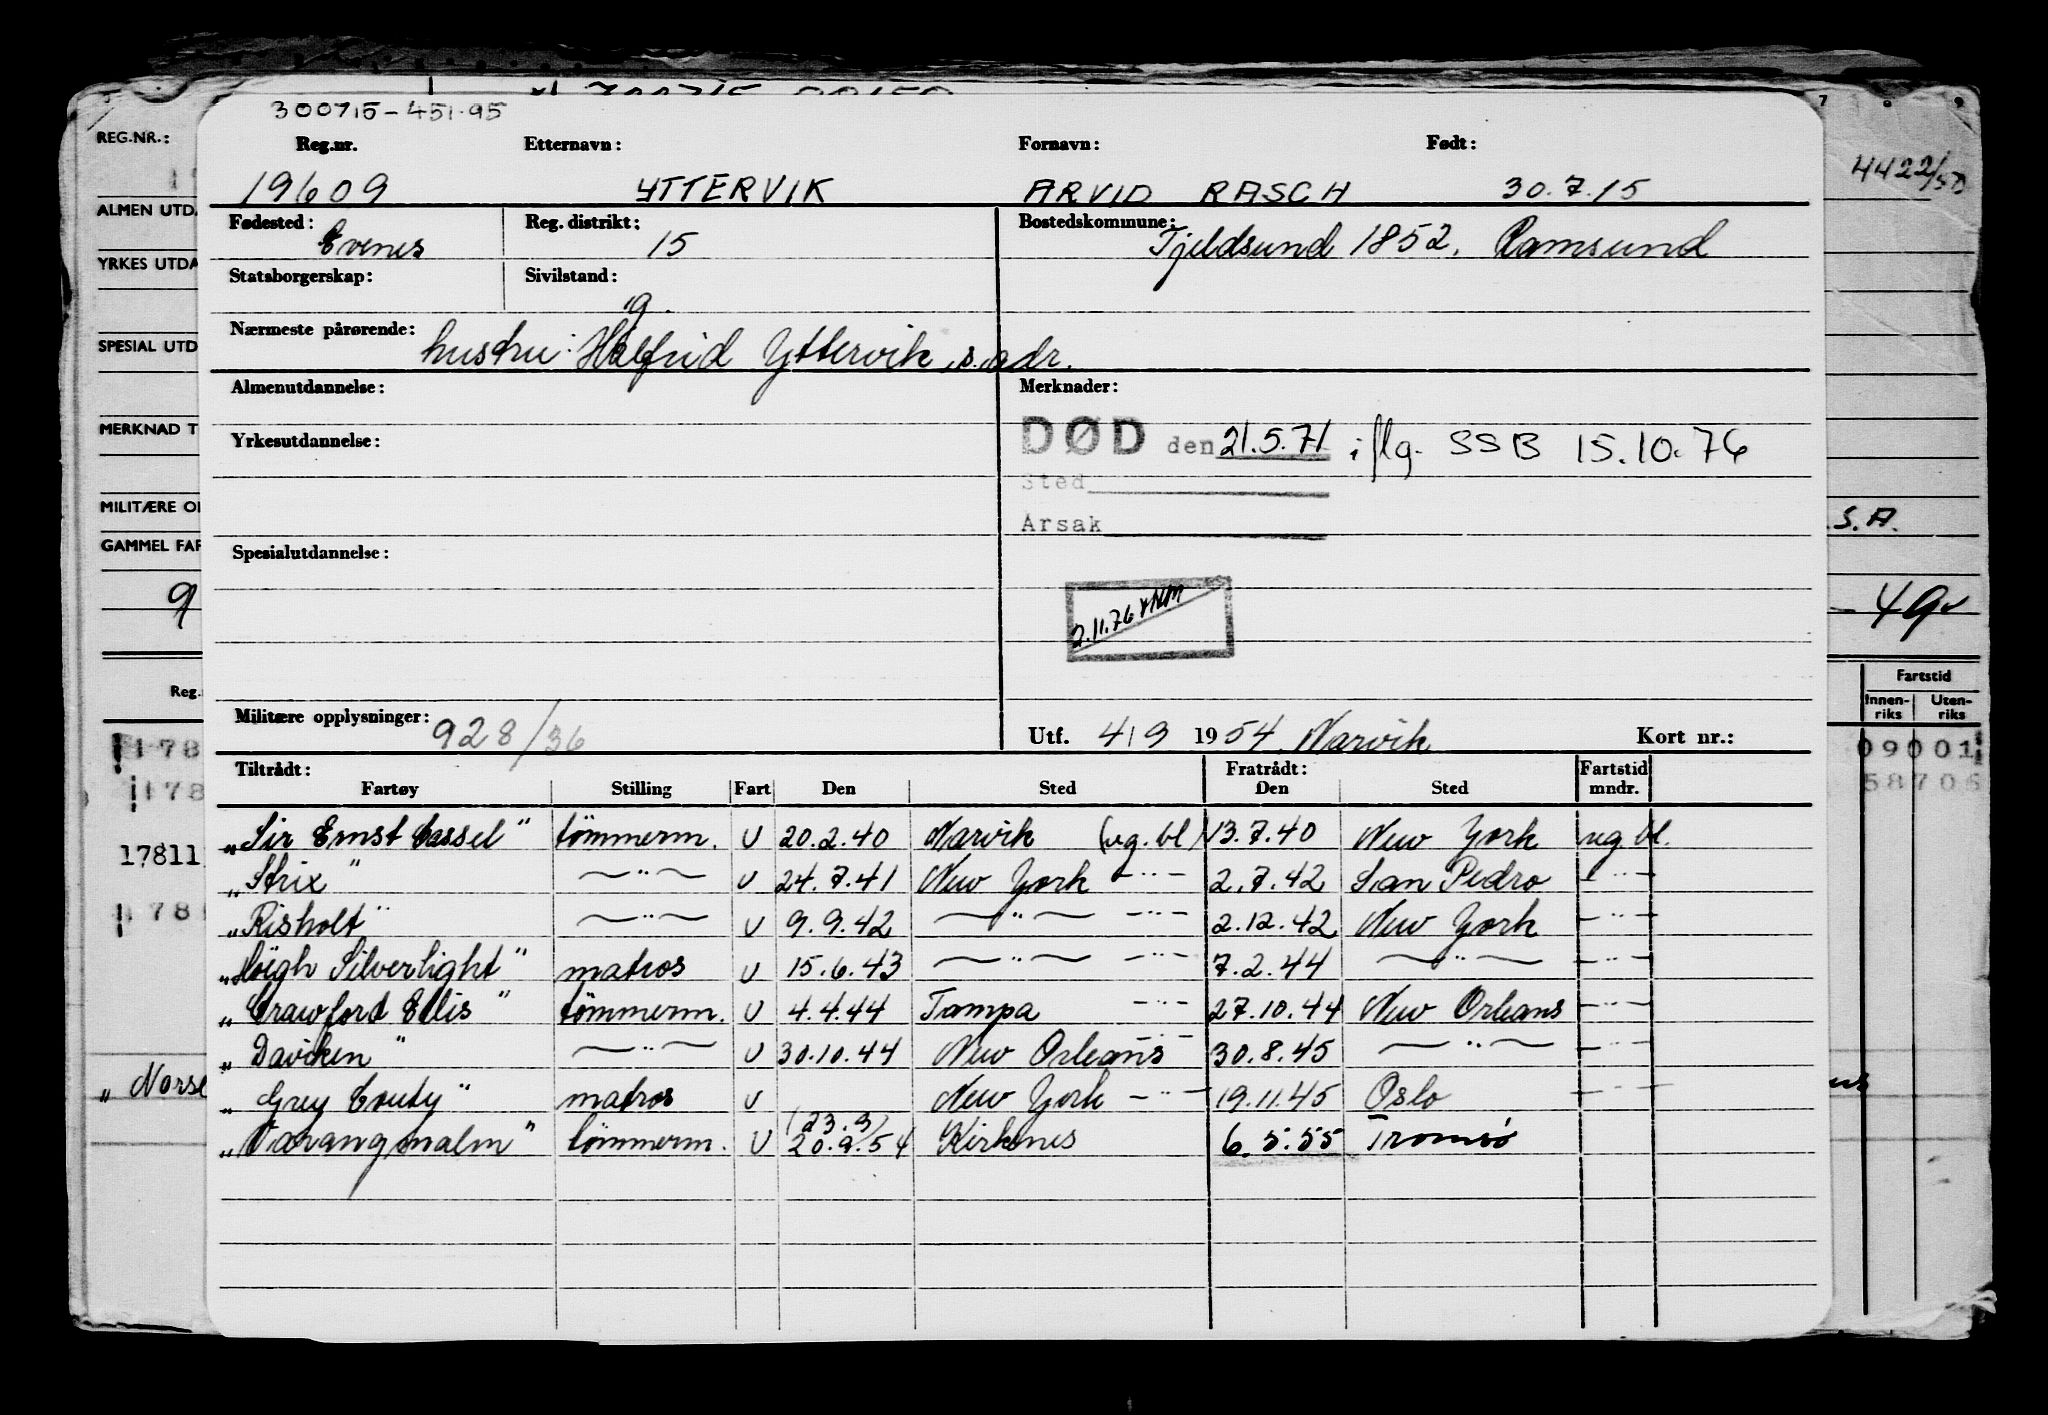 300715-451.95
REG.NR.:
Reg.nr.
Etternavn:
Fornavn:
Født:
19609
YTTERVIK
ARVID RASCH
30.7.15
4422/50
ALMEN UTDA
Fødested:
Evenes
Reg. distrikt:
15
Bostedskommune:
Tjeldsund 1852. Ramsund
YRKES UTDA
Statsborgerskap:
Sivilstand:
g.
Nærmeste pårørende:
hustru: Halfrid Yttervik, s. adr.
SPESIAL UTD
Almenutdannelse:
Merknader:
MERKNAD T
Yrkesutdannelse:
DØD den 21.5.71 iflg. SSB 15.10.76
Sted
MILITÆRE O
Årsak
.S.A.
GAMMEL FAR
Spesialutdannelse:
2.11.76
- 49
Reg.
Fartstid
Innen-riks
Uten-riks
Militære opplysninger:
928/36
Utf. 4/9 1954 Narvik
Kort nr.:
178
09001
Tiltrådt:
Fratrådt:
Fartstid mndr.
Fartøy
Stilling
Fart
Den
Sted
Den
Sted
178
58706
„Sir Ernst Cassel" tömmerm. U 20.2.40 Narvik (ug. bl) 13.7.40 New York ug. bl.
17811
„Strix" —"— U 24.7.41 New York -"- 2.7.42 San Pedro -"-
„Risholt" —"— U 9.9.42 —"— -"- 2.12.42 New York -"-
178
„Höegh Silverlight" matros U 15.6.43 —"— -"- 7.2.44 —"— -"-
„Crawford Ellis" tömmerm. U 4.4.44 Tampa -"- 27.10.44 New Orleans -"-
„Daviken" —"— U 30.10.44 New Orleans -"- 30.8.45 —"— -"-
„Norse
„Grey County" matros U New York -"- 19.11.45 Oslo -"-
(23.9)
„Varangmalm" tömmerm. U 20.9.54 Kirkenes 6.5.55 Tromsø